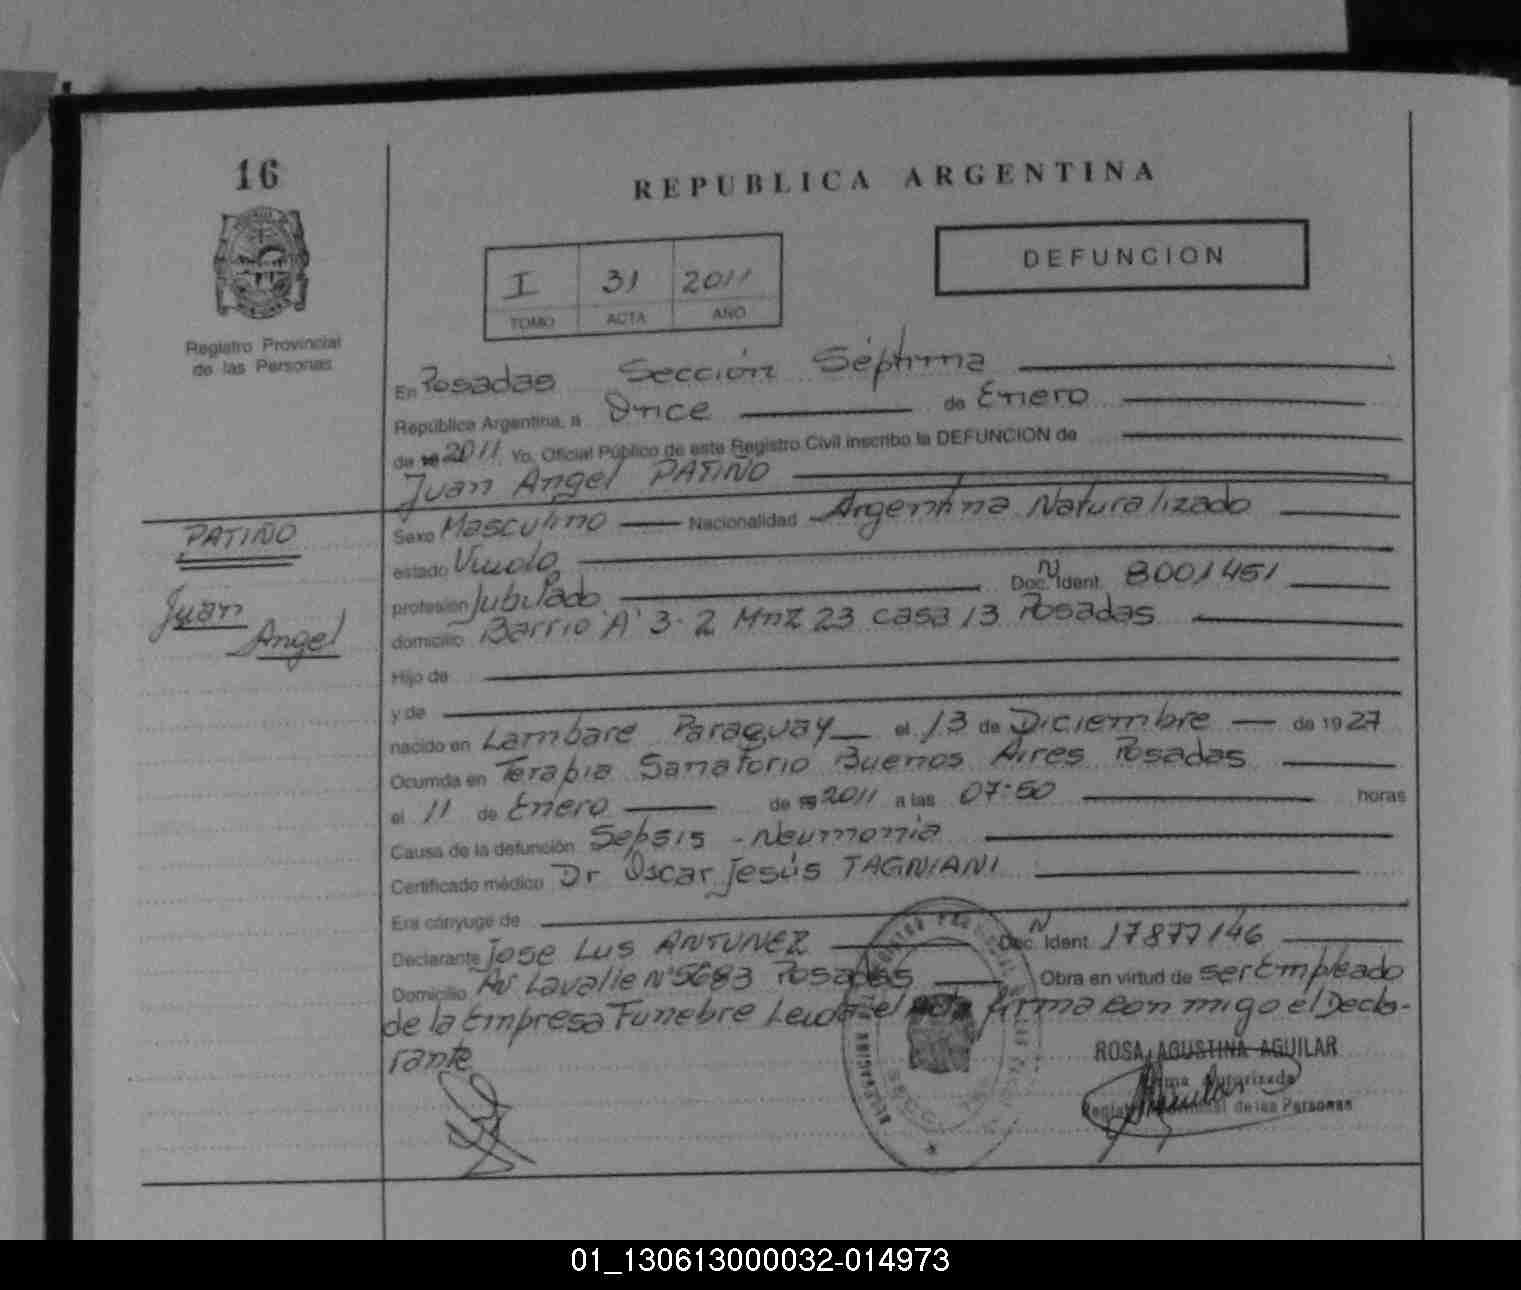 16
REPUBLICA ARGENTINA
DEFUNCION
I 31 2011
TOMO ACTA AÑO
Registro Provincial
de las Personas
En Posadas Sección Séptima
República Argentina, a Once de Enero
de 19 2011 Yo, Oficial Público de este Registro Civil inscribo la DEFUNCION de
Juan Angel PATIÑO
PATIÑO
Juan
Angel
Sexo Masculino Nacionalidad Argentina Naturalizado
estado Viudo
profesión Jubilado Doc. N Ident. 8001451
domicilio Barrio 'A' 3-2 Mnz 23 casa 13 Posadas
Hijo de
y de
nacido en Lambare Paraguay el 13 de Diciembre de 1927
Ocurrida en Terapia Sanatorio Buenos Aires Posadas
el 11 de Enero de 19 2011 a las 07:50 horas
Causa de la defunción Sepsis - Neumonia
Certificado médico Dr Oscar Jesús TAGNIANI
Era cónyuge de
Declarante Jose Luis ANTUNEZ Doc. N Ident. 17877146
Domicilio Av Lavalle N° 5683 Posadas Obra en virtud de ser Empleado
de la Empresa Funebre Leida el firma con migo el Decla-
rante
ROSA AGUSTINA AGUILAR
Firma Autorizada
Registro Provincial de las Personas
01_130613000032-014973